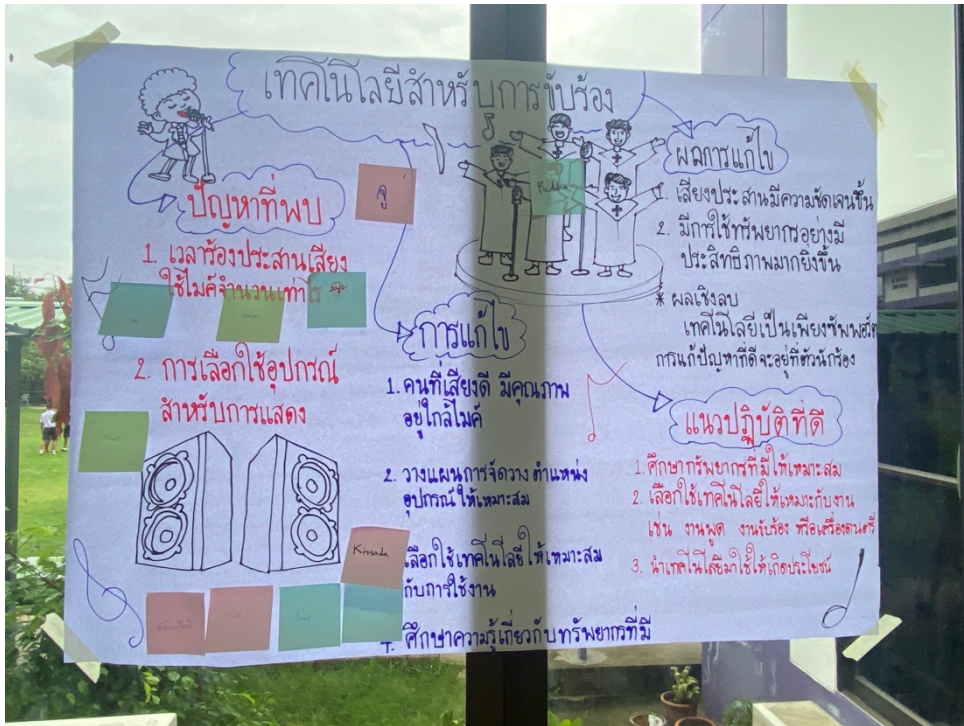 เทคโนโลยีสำหรับการขับร้อง
ปัญหาที่พบ
1. เวลาร้องประสานเสียง
ใช้ไมค์จำนวนเท่าไร
2. การเลือกใช้อุปกรณ์
สำหรับการแสดง
Kissada
การแก้ไข
1. คนที่เสียงดี มีคุณภาพ
อยู่ใกล้ไมค์
2. วางแผนการจัดวาง ตำแหน่ง
อุปกรณ์ให้เหมาะสม
เลือกใช้เทคโนโลยีให้เหมาะสม
กับการใช้งาน
ศึกษาความรู้เกี่ยวกับทรัพยากรที่มี
ผลการแก้ไข
1. เสียงประสานมีความชัดเจนขึ้น
2. มีการใช้ทรัพยากรอย่างมี
ประสิทธิภาพมากยิ่งขึ้น
* ผลเชิงลบ
เทคโนโลยีเป็นเพียงซัพพอร์ต
การแก้ปัญหาที่ดีจะอยู่ที่ตัวนักร้อง
แนวปฏิบัติที่ดี
1. ศึกษาทรัพยากรที่มีให้เหมาะสม
2. เลือกใช้เทคโนโลยีให้เหมาะกับงาน
เช่น งานพูด งานขับร้อง หรือเครื่องดนตรี
3. นำเทคโนโลยีมาใช้ให้เกิดประโยชน์